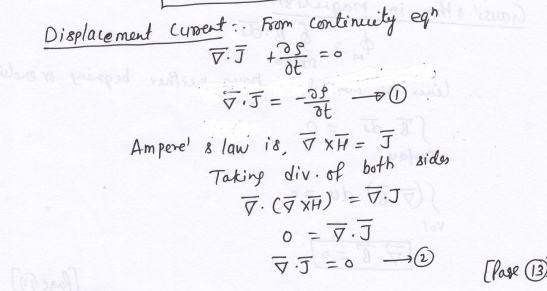 Displacement Current :- From continuity eqⁿ
∇̄·J̄ + ∂ρ/∂t = 0
∇̄·J̄ = -∂ρ/∂t → ①
Ampere's law is, ∇̄ × H̄ = J̄
Taking div. of both sides
∇̄·(∇̄ × H̄) = ∇̄·J̄
0 = ∇̄·J̄
∇̄·J̄ = 0 → ②
[Page 13